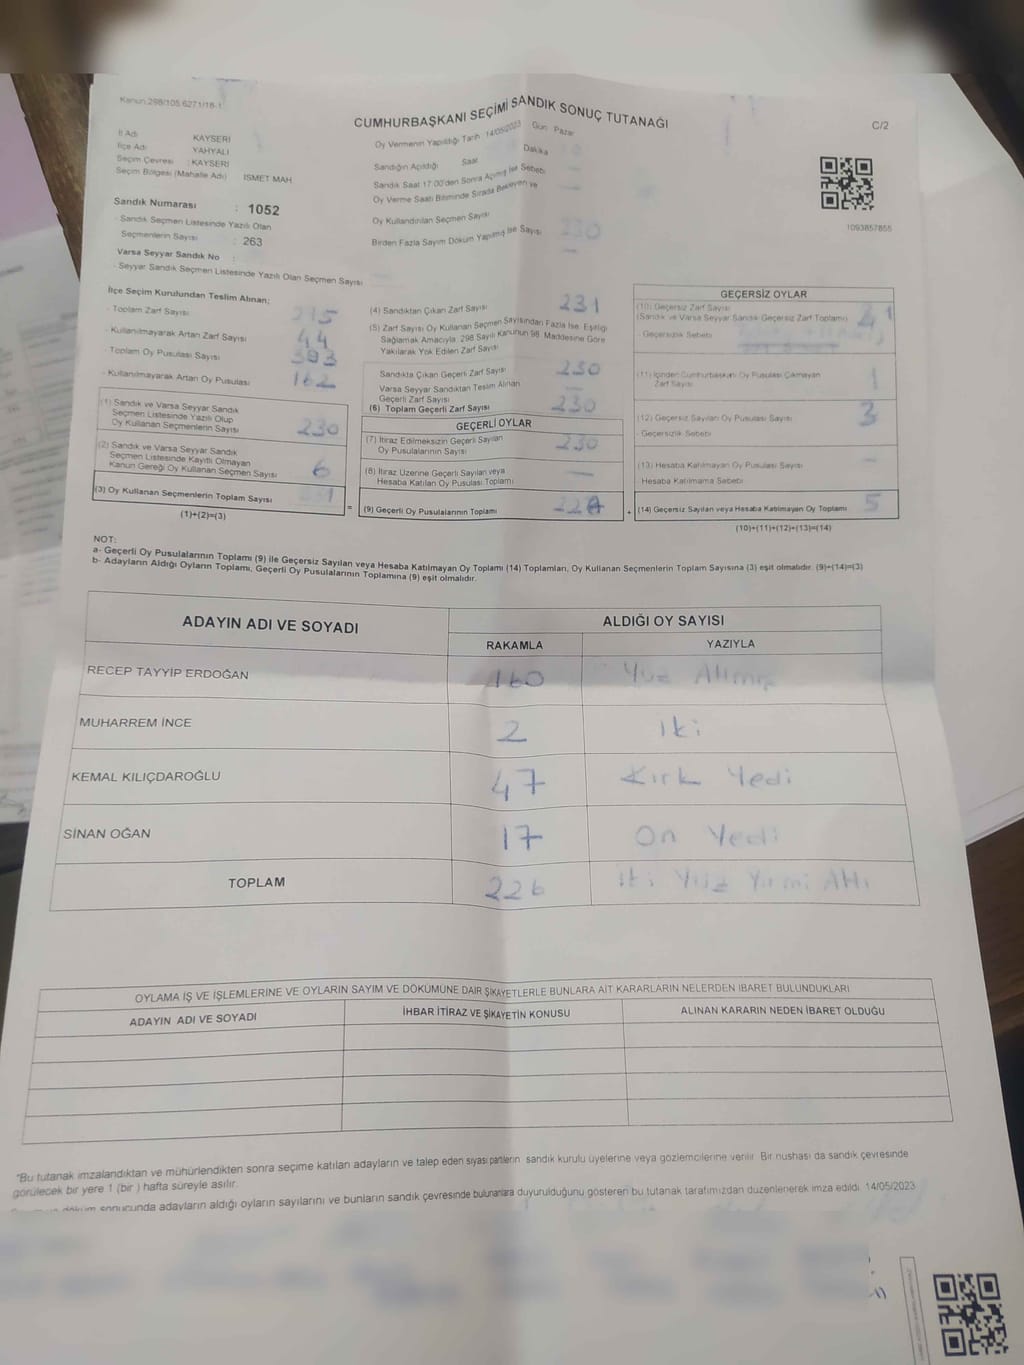 Kanun.298/105.6271/18-1
CUMHURBAŞKANI SEÇİMİ SANDIK SONUÇ TUTANAĞI
C/2
İl Adı KAYSERİ
İlçe Adı YAHYALI
Seçim Çevresi : KAYSERİ
Seçim Bölgesi (Mahalle Adı) İSMET MAH
Sandık Numarası : 1052
- Sandık Seçmen Listesinde Yazılı Olan
Seçmenlerin Sayısı : 263
Varsa Seyyar Sandık No :
- Seyyar Sandık Seçmen Listesinde Yazılı Olan Seçmen Sayısı
Oy Vermenin Yapıldığı Tarih 14/05/2023 Gün Pazar
Sandığın Açıldığı Saat Dakika
Sandık Saat 17:00'den Sonra Açılmış İse Sebebi
Oy Verme Saati Bitiminde Sırada Bekleyen ve
Oy Kullandırılan Seçmen Sayısı
Birden Fazla Sayım Döküm Yapılmış İse Sayısı
1093857855
İlçe Seçim Kurulundan Teslim Alınan;
- Toplam Zarf Sayısı
- Kullanılmayarak Artan Zarf Sayısı 44
- Toplam Oy Pusulası Sayısı
- Kullanılmayarak Artan Oy Pusulası 162
(1) Sandık ve Varsa Seyyar Sandık
Seçmen Listesinde Yazılı Olup
Oy Kullanan Seçmenlerin Sayısı 230
(2) Sandık ve Varsa Seyyar Sandık
Seçmen Listesinde Kayıtlı Olmayan
Kanun Gereği Oy Kullanan Seçmen Sayısı 6
(3) Oy Kullanan Seçmenlerin Toplam Sayısı
(1)+(2)=(3)
(4) Sandıktan Çıkan Zarf Sayısı 231
(5) Zarf Sayısı Oy Kullanan Seçmen Sayısından Fazla İse, Eşitliği
Sağlamak Amacıyla, 298 Sayılı Kanunun 98. Maddesine Göre
Yakılarak Yok Edilen Zarf Sayısı
Sandıkta Çıkan Geçerli Zarf Sayısı 230
Varsa Seyyar Sandıktan Teslim Alınan
Geçerli Zarf Sayısı —
(6) Toplam Geçerli Zarf Sayısı 230
GEÇERLİ OYLAR
(7) İtiraz Edilmeksizin Geçerli Sayılan
Oy Pusulalarının Sayısı 230
(8) İtiraz Üzerine Geçerli Sayılan veya
Hesaba Katılan Oy Pusulası Toplamı —
(9) Geçerli Oy Pusulalarının Toplamı
GEÇERSİZ OYLAR
(10) Geçersiz Zarf Sayısı
(Sandık ve Varsa Seyyar Sandık Geçersiz Zarf Toplamı)
- Geçersizlik Sebebi
(11) İçinden Cumhurbaşkanı Oy Pusulası Çıkmayan
Zarf Sayısı 1
(12) Geçersiz Sayılan Oy Pusulası Sayısı 3
- Geçersizlik Sebebi
(13) Hesaba Katılmayan Oy Pusulası Sayısı —
- Hesaba Katılmama Sebebi
(14) Geçersiz Sayılan veya Hesaba Katılmayan Oy Toplamı 5
(10)+(11)+(12)+(13)=(14)
NOT:
a- Geçerli Oy Pusulalarının Toplamı (9) ile Geçersiz Sayılan veya Hesaba Katılmayan Oy Toplamı (14) Toplamları, Oy Kullanan Seçmenlerin Toplam Sayısına (3) eşit olmalıdır. (9)+(14)=(3)
b- Adayların Aldığı Oyların Toplamı, Geçerli Oy Pusulalarının Toplamına (9) eşit olmalıdır.
ADAYIN ADI VE SOYADI ALDIĞI OY SAYISI
RAKAMLA YAZIYLA
RECEP TAYYİP ERDOĞAN 160 Yüz Altmış
MUHARREM İNCE 2 İki
KEMAL KILIÇDAROĞLU 47 Kırk Yedi
SİNAN OĞAN 17 On Yedi
TOPLAM 226 İki Yüz Yirmi Altı
OYLAMA İŞ VE İŞLEMLERİNE VE OYLARIN SAYIM VE DÖKÜMÜNE DAİR ŞİKAYETLERLE BUNLARA AİT KARARLARIN NELERDEN İBARET BULUNDUKLARI
ADAYIN ADI VE SOYADI İHBAR İTİRAZ VE ŞİKAYETİN KONUSU ALINAN KARARIN NEDEN İBARET OLDUĞU
"Bu tutanak imzalandıktan ve mühürlendikten sonra seçime katılan adayların ve talep eden siyasi partilerin sandık kurulu üyelerine veya gözlemcilerine verilir. Bir nushası da sandık çevresinde
görülecek bir yere 1 (bir ) hafta süreyle asılır.
döküm sonucunda adayların aldığı oyların sayılarını ve bunların sandık çevresinde bulunanlara duyurulduğunu gösteren bu tutanak tarafımızdan düzenlenerek imza edildi. 14/05/2023